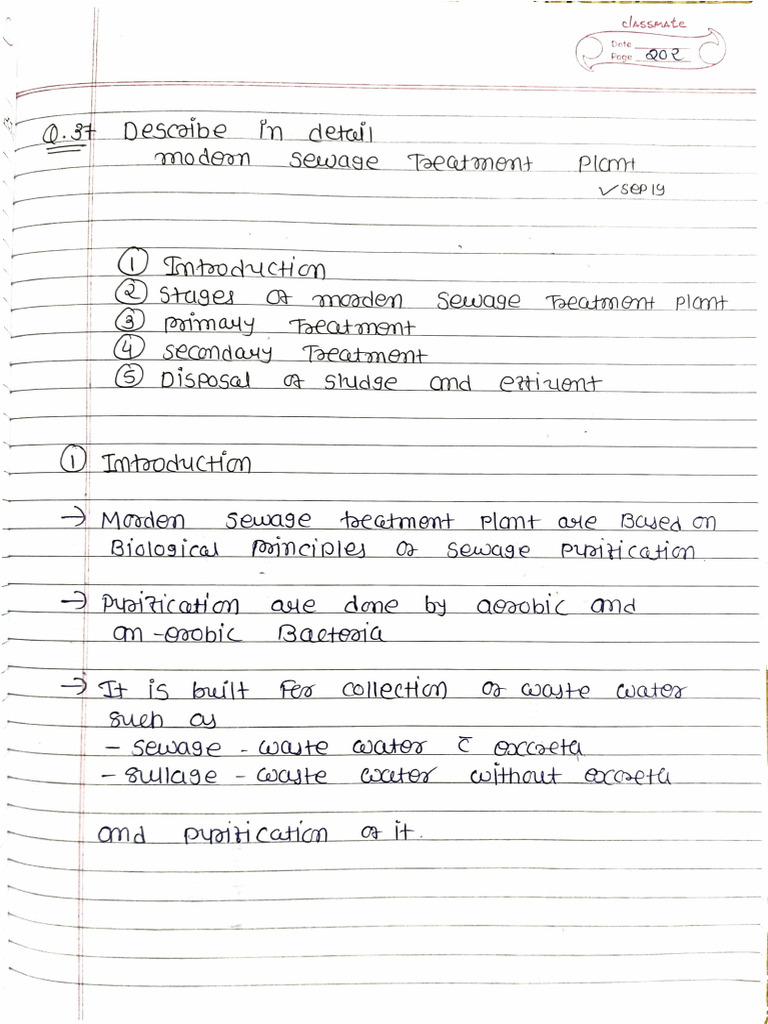 classmate
Date
Page 202
Q.37 Describe in detail
modern sewage Treatment Plant
✓sep19
① Introduction
② Stages of morden sewage treatment plant
③ primary Treatment
④ secondary Treatment
⑤ Disposal of sludge and effiuent
① Introduction
→ Morden sewage treatment plant are Based on
Biological principles of sewage purification
→ Purification are done by aerobic and
an-erobic Bacteria
→ It is built for collection of waste water
such as
- sewage - waste water c̄ excreta
- sullage - waste water without excreta
and purification of it.